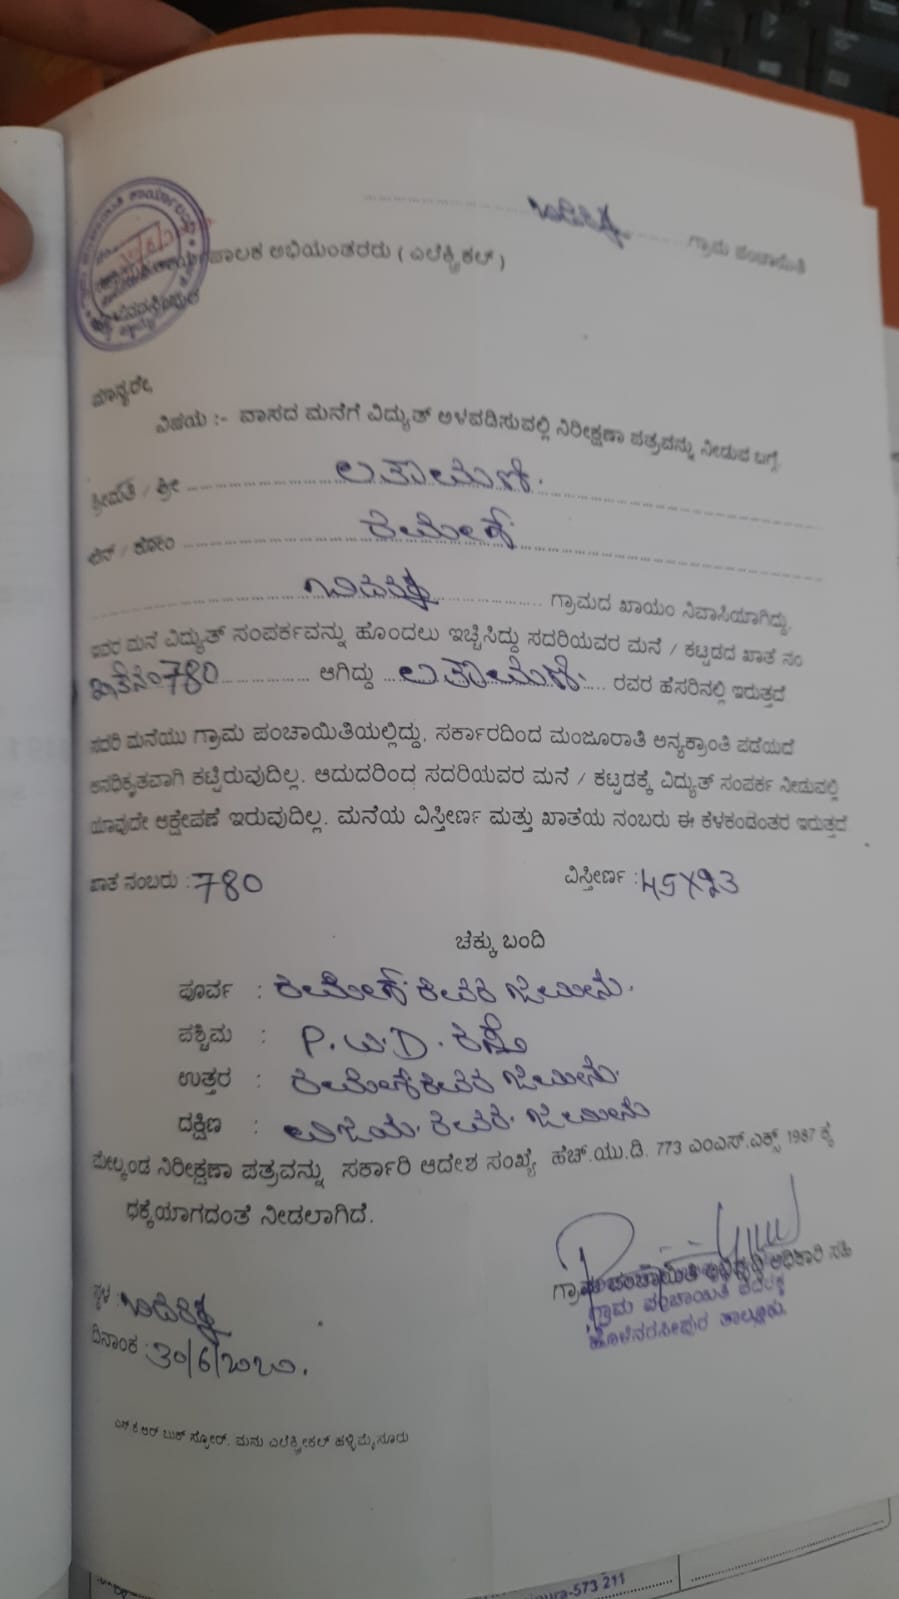 ಗ್ರಾಮ ಪಂಚಾಯಿತಿ
ಪಾಲಕ ಅಭಿಯಂತರರು ( ಎಲೆಕ್ಟ್ರಿಕಲ್ )
ಮಾನ್ಯರೇ,
ವಿಷಯ :- ವಾಸದ ಮನೆಗೆ ವಿದ್ಯುತ್ ಅಳವಡಿಸುವಲ್ಲಿ ನಿರೀಕ್ಷಣಾ ಪತ್ರವನ್ನು ನೀಡುವ ಬಗ್ಗೆ.
ಶ್ರೀಮತಿ / ಶ್ರೀ ಲತಾಮಣಿ.
ಬಿನ್ / ಕೋಂ ರಮೇಶ್
ಗ್ರಾಮದ ಖಾಯಂ ನಿವಾಸಿಯಾಗಿದ್ದು,
ಇವರ ಮನೆ ವಿದ್ಯುತ್ ಸಂಪರ್ಕವನ್ನು ಹೊಂದಲು ಇಚ್ಛಿಸಿದ್ದು ಸದರಿಯವರ ಮನೆ / ಕಟ್ಟಡದ ಖಾತೆ ನಂ
ಖಾತೆನಂ 780 ಆಗಿದ್ದು ಲತಾಮಣಿ. ರವರ ಹೆಸರಿನಲ್ಲಿ ಇರುತ್ತದೆ
ಸದರಿ ಮನೆಯು ಗ್ರಾಮ ಪಂಚಾಯಿತಿಯಲ್ಲಿದ್ದು, ಸರ್ಕಾರದಿಂದ ಮಂಜೂರಾತಿ ಅನ್ಯಕ್ರಾಂತಿ ಪಡೆಯದೆ
ಅನಧಿಕೃತವಾಗಿ ಕಟ್ಟಿರುವುದಿಲ್ಲ. ಆದುದರಿಂದ ಸದರಿಯವರ ಮನೆ / ಕಟ್ಟಡಕ್ಕೆ ವಿದ್ಯುತ್ ಸಂಪರ್ಕ ನೀಡುವಲ್ಲಿ
ಯಾವುದೇ ಆಕ್ಷೇಪಣೆ ಇರುವುದಿಲ್ಲ. ಮನೆಯ ವಿಸ್ತೀರ್ಣ ಮತ್ತು ಖಾತೆಯ ನಂಬರು ಈ ಕೆಳಕಂಡಂತರ ಇರುತ್ತದೆ
ಖಾತೆ ನಂಬರು : 780 ವಿಸ್ತೀರ್ಣ : 45X23
ಚೆಕ್ಕು ಬಂದಿ
ಪೂರ್ವ : ರಮೇಶ್ ರವರ ಜಮೀನು.
ಪಶ್ಚಿಮ : P.W.D. ರಸ್ತೆ
ಉತ್ತರ : ರಮೇಶ್ ರವರ ಜಮೀನು.
ದಕ್ಷಿಣ : ವಿಜಯ. ರವರ. ಜಮೀನು
ಮೇಲ್ಕಂಡ ನಿರೀಕ್ಷಣಾ ಪತ್ರವನ್ನು ಸರ್ಕಾರಿ ಆದೇಶ ಸಂಖ್ಯೆ ಹೆಚ್.ಯು.ಡಿ. 773 ಎಂಎಸ್.ಎಕ್ಸ್ 1987 ಕ್ಕೆ
ಧಕ್ಕೆಯಾಗದಂತೆ ನೀಡಲಾಗಿದೆ.
ಗ್ರಾಮ ಪಂಚಾಯಿತಿ ಅಭಿವೃದ್ಧಿ ಅಧಿಕಾರಿ ಸಹಿ
ಗ್ರಾಮ ಪಂಚಾಯಿತಿ
ಹೊಳೆನರಸೀಪುರ ತಾಲ್ಲೂಕು.
ಸ್ಥಳ :
ದಿನಾಂಕ : 30/6/2020.
ಎಸ್.ಕೆ.ಆರ್ ಬುಕ್ ಸ್ಟೋರ್. ಮನು ಎಲೆಕ್ಟ್ರಿಕಲ್ ಹಳ್ಳಿಮೈಸೂರು
-573 211